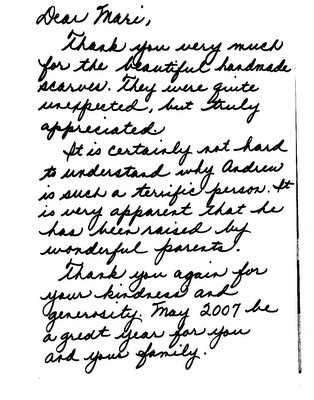 Dear Mari,
Thank you very much
for the beautiful handmade
scarves. They were quite
unexpected, but truly
appreciated
It is certainly not hard
to understand why Andrew
is such a terrific person. It
is very apparent that he
has been raised by
wonderful parents.
Thank you again for
your kindness and
generosity. May 2007 be
a great year for you
and your family.